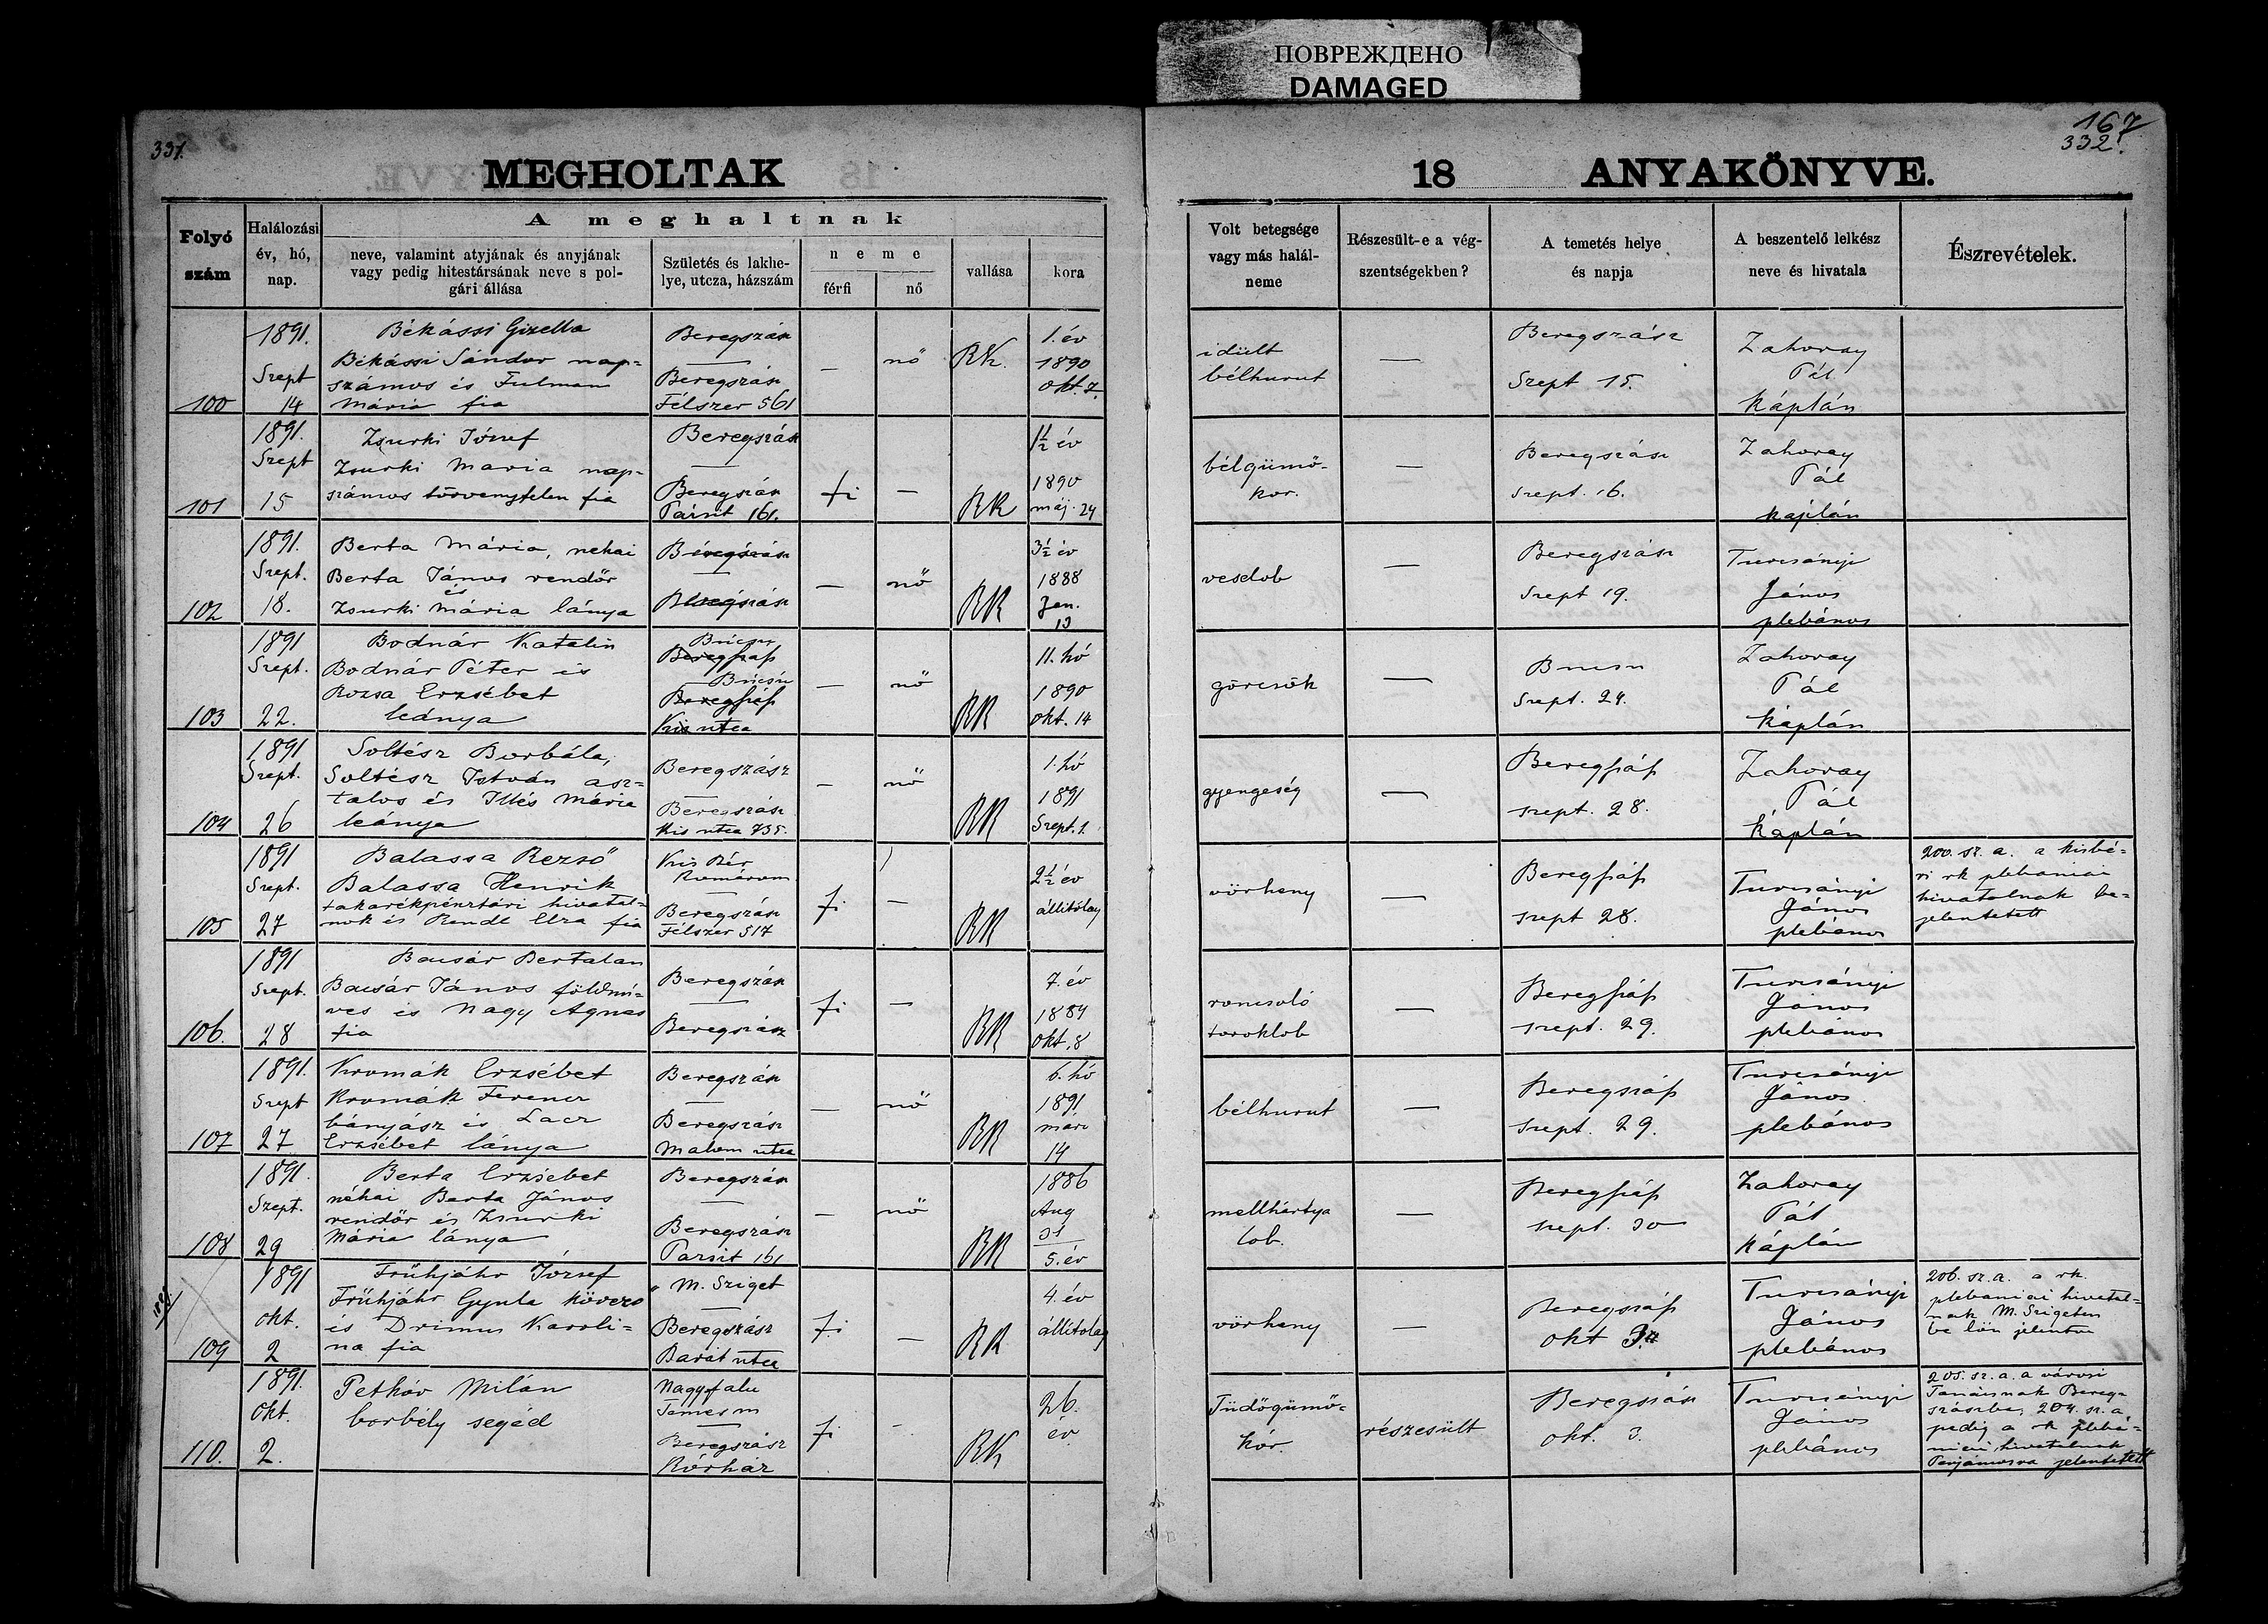 ПОВРЕЖДЕНО
DAMAGED
331.
167
332.
MEGHOLTAK
18 ANYAKÖNYVE.
Folyó
szám
Halálozási
év, hó,
nap.
A meghaltnak
neve, valamint atyjának és anyjának
vagy pedig hitestársának neve s pol-
gári állása
Születés és lakhe-
lye, utcza, házszám
neme
férfi
nő
vallása
kora
Volt betegsége
vagy más halál-
neme
Részesült-e a vég-
szentségekben?
A temetés helye
és napja
A beszentelő lelkész
neve és hivatala
Észrevételek.
100
1891.
Szept
14
Békássi Gizella
Békássi Sándor nap-
számos és Fulman
Mária fia
Beregszász
—
Beregszász
Félszer 561
—
nő
RK.
1. év
1890
okt. 7.
idült
bélhurut
—
Beregszász
Szept 15.
Zahoray
Pál
Káplán
101
1891.
Szept
15
Zsurki József
Zsurki Maria nap-
számos törvenytelen fia
Beregszász
—
Beregszász
161.
fi
—
RK
1½ év
1890
máj. 24
bélgümő-
kor.
—
Beregszász
Szept. 16.
Zahoray
Pál
káplán
102
1891.
Szept.
18.
Berta Mária, nehai
Berta János rendőr
és
Zsurki Mária lánya
Beregszász
—
Beregszász
—
nő
RK
3½ év
1888
Jan.
13
veselob
—
Beregszász
Szept 19.
Turcsányi
János
plebános
103
1891
Szept.
22.
Bodnár Katalin
Bodnár Péter és
Rozsa Erzsébet
leánya
Búcsu
Beregszász
Búcsu
Beregszász
Kis utca
—
nő
RK
11. hó
1890
okt. 14
görcsök
—
Bucsu
Szept. 24.
Zahoray
Pál
Káplán
104
1891
Szept.
26
Soltész Borbála,
Soltész István asz-
talos és Illés Mária
leánya
Beregszász
—
Beregszász
Kis utca 735.
—
nő
RK
1. hó
1891
Szept. 1.
gyengeség
—
Beregszász
szept. 28.
Zahoray
Pál
Káplán
105
1891
Szept.
27
Balassa Rezső
Balassa Henrik
takarékpénztári hivatal-
nok és Rendl Elza fia
Kis Bér
Komárom
—
Beregszász
Félszer 517
fi
—
RK
2½ év
állitólag
vörheny
—
Beregszász
szept 28.
Turcsányi
János
plebános
200. sz. a. a kisbé-
ri rk plebaniai
hivatalnak be-
jelentetett
106.
1891
Szept.
28
Bacsár Bertalan
Bacsár János földmi-
ves és Nagy Agnes
fia
Beregszász
—
Beregszász
fi
—
RK
7. év
1884
okt. 8
roncsoló
toroklob
—
Beregszász
szept. 29.
Turcsányi
János
plebános
107
1891.
Szept
27
Kromák Erzsébet
Kromák Ferencz
bányász és Lacz
Erzsébet lánya
Beregszász
—
Beregszász
Malom utca
—
nő
RK
6. hó
1891
márc
14
bélhurut
—
Beregszász
Szept. 29.
Turcsányi
János
plebános
108
1891.
Szept.
29
Berta Erzsébet
néhai Berta János
rendőr és Zsurki
Mária lánya
Beregszász
—
Beregszász
161
—
nő
RK
1886
Aug
31
5. év
mellhártya
lob.
—
Beregszász
szept. 30
Zahoray
Pál
Káplán
109
1891
okt.
2
Frühjáhr József
Frühjáhr Gyula
és Drimus Karoli-
na fia
M. Sziget
—
Beregszász
Barát utca
fi
—
RK
4. év
állitolag
vörheny
—
Beregszász
okt 3.
Turcsányi
János
plebános
206. sz. a. a rk.
plebaniai hivatal-
nak M. Szigeten
be lön jelentve
110.
1891.
Okt.
2.
Petkov Milán
borbély segéd
Nagyfalu
Temes m
—
Beregszász
Kórház
fi
-
RK
26.
év
Tüdőgümő-
kór
részesült
Beregszász
okt. 3.
Turcsányi
János
plebános
205. sz. a. a városi
Tanácsnak Bereg-
szászba, 204. sz. a.
pedig a rk plebá-
niai hivatalnak
Perjámosra jelentetett